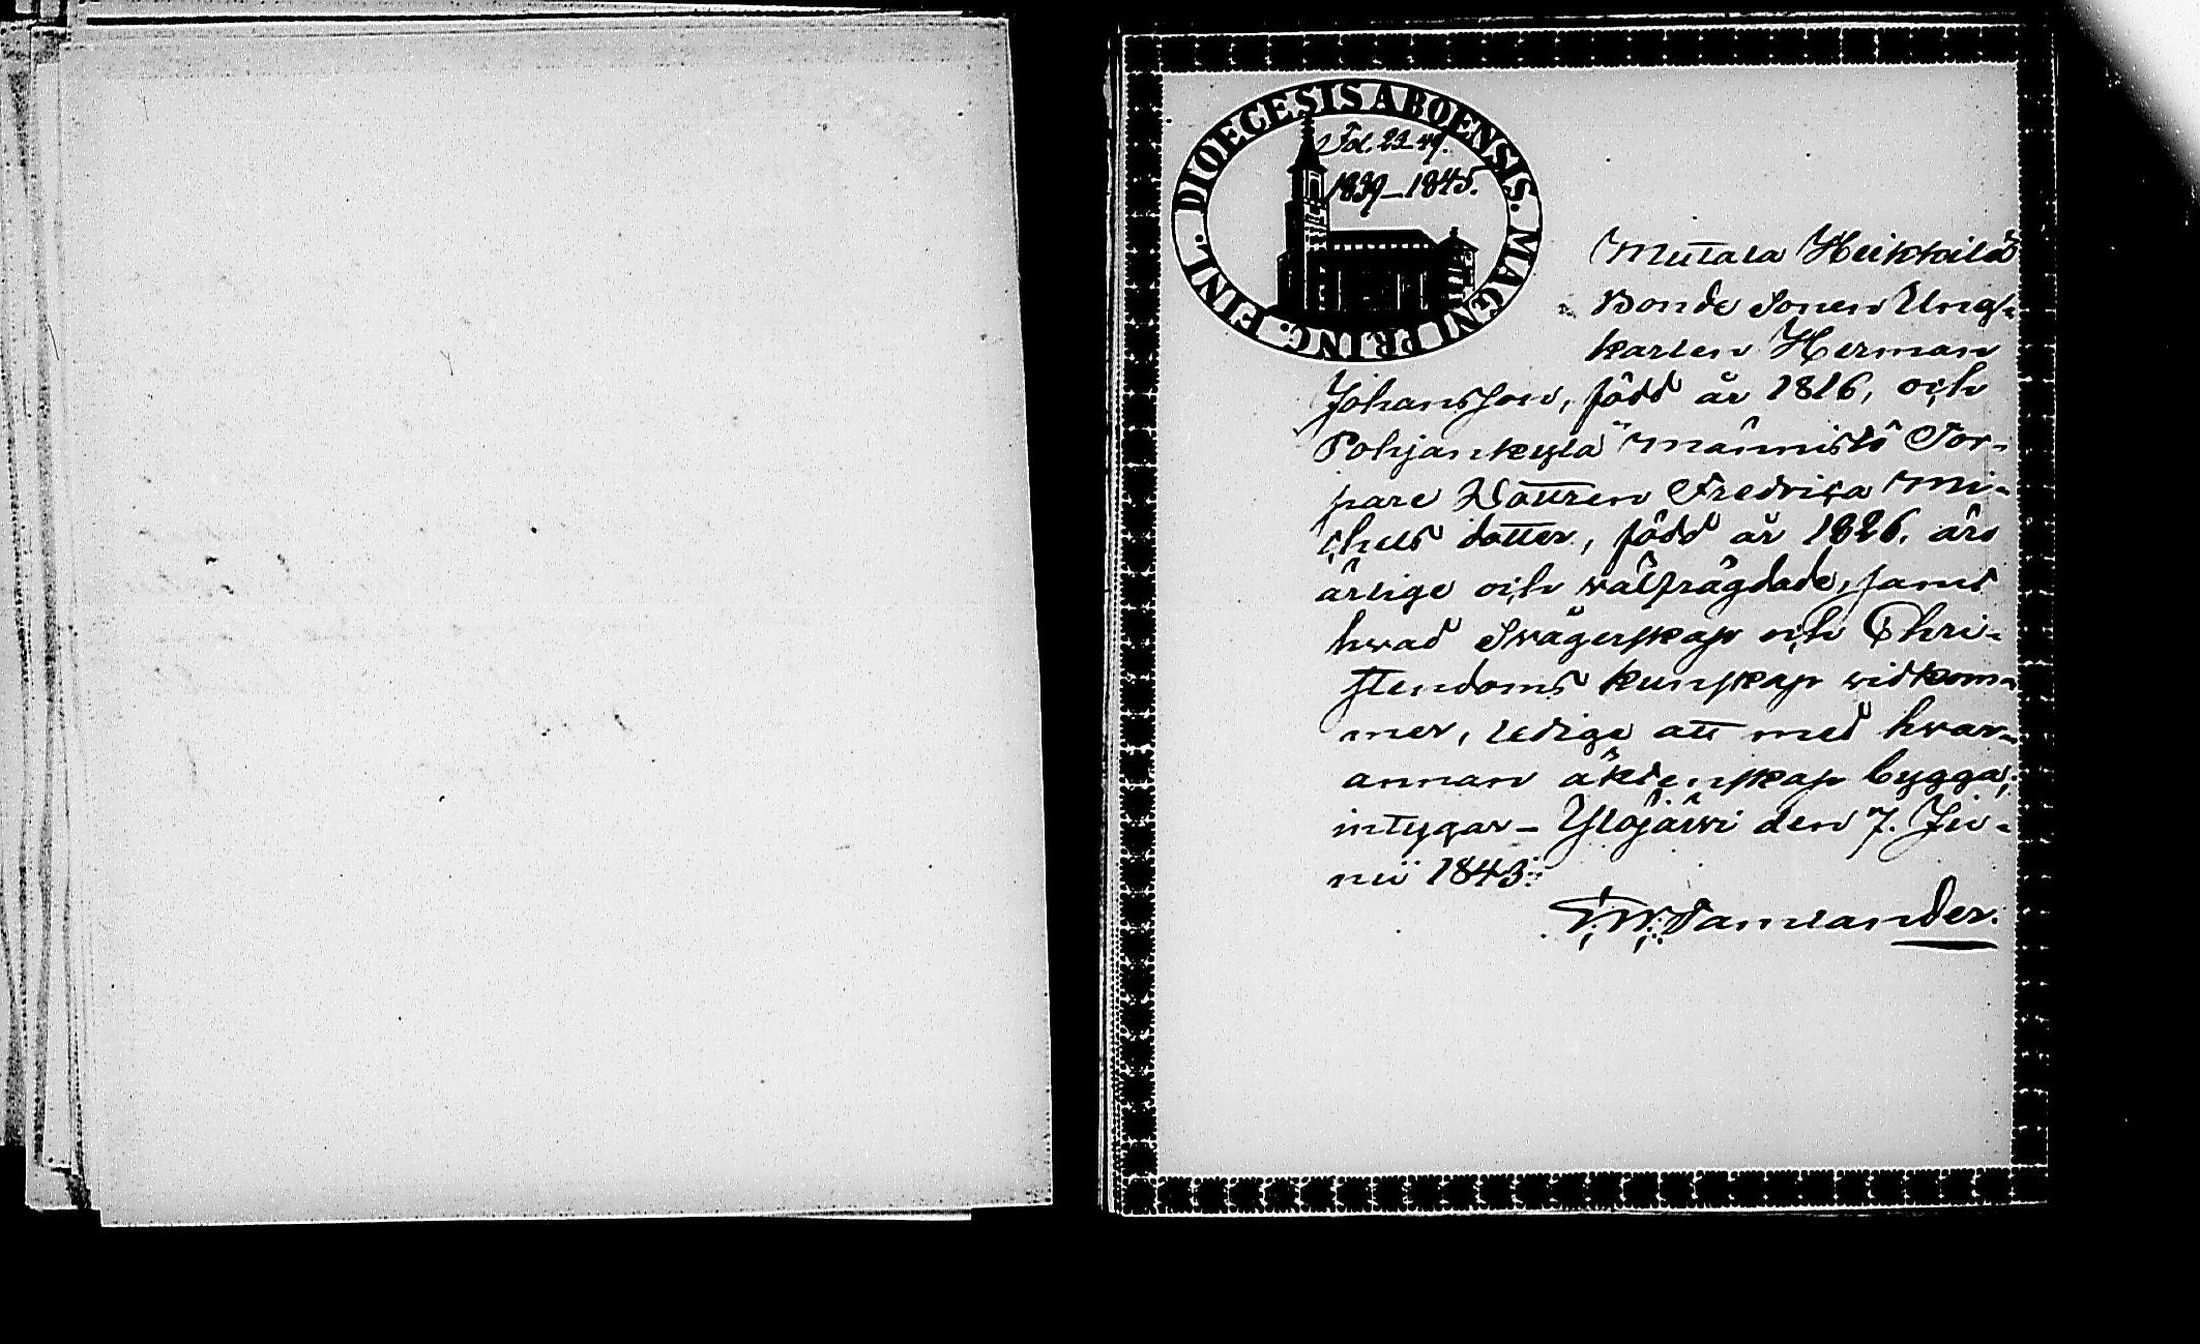 DIOECESIS ABOENSIS. MAGNI PRINC. FINL.
Fol. 23-49.
1839-1845.
Mutala Heikkilä
Bonde Sonen Ung-
karlen Herman
Johansson, född år 1816, och
Pohjankylä Männistö Tor-
pare Dottren Fredrica Mi-
chels dotter, född år 1826. äro
ärlige och wälfrägdade, samt
hwad Swägerskap och Chri-
stendoms kunskap widkom-
mer, ledige att med hwar-
annan äktenskap bygga;
intygar - Ylöjärvi den 7. Ju-
nii 1843.